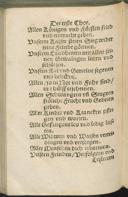 Der erste Chor.
Allen Königen und Fürsten fried
und eintracht geben.
Unserm Kayser stets wider seine
Feinde
Unsern
schützen.
Unsern Rat und Gemeine segnen
und behüten.
Allen so in Not und Fahr sind,
mit hülff erscheinen.
Allen Schwangern und Seugern
fröliche Frucht und Gedeien
geben.
Aller Kinder und Krancken pfle-
gen und warten.
Alle Gefangene los und ledig las-
sen.
Alle Witwen und Waisen vertei-
dingen und versorgen.
Aller Menschen dich erbarmen.
Unsern Feinden, Verfolgern und
Lesterern